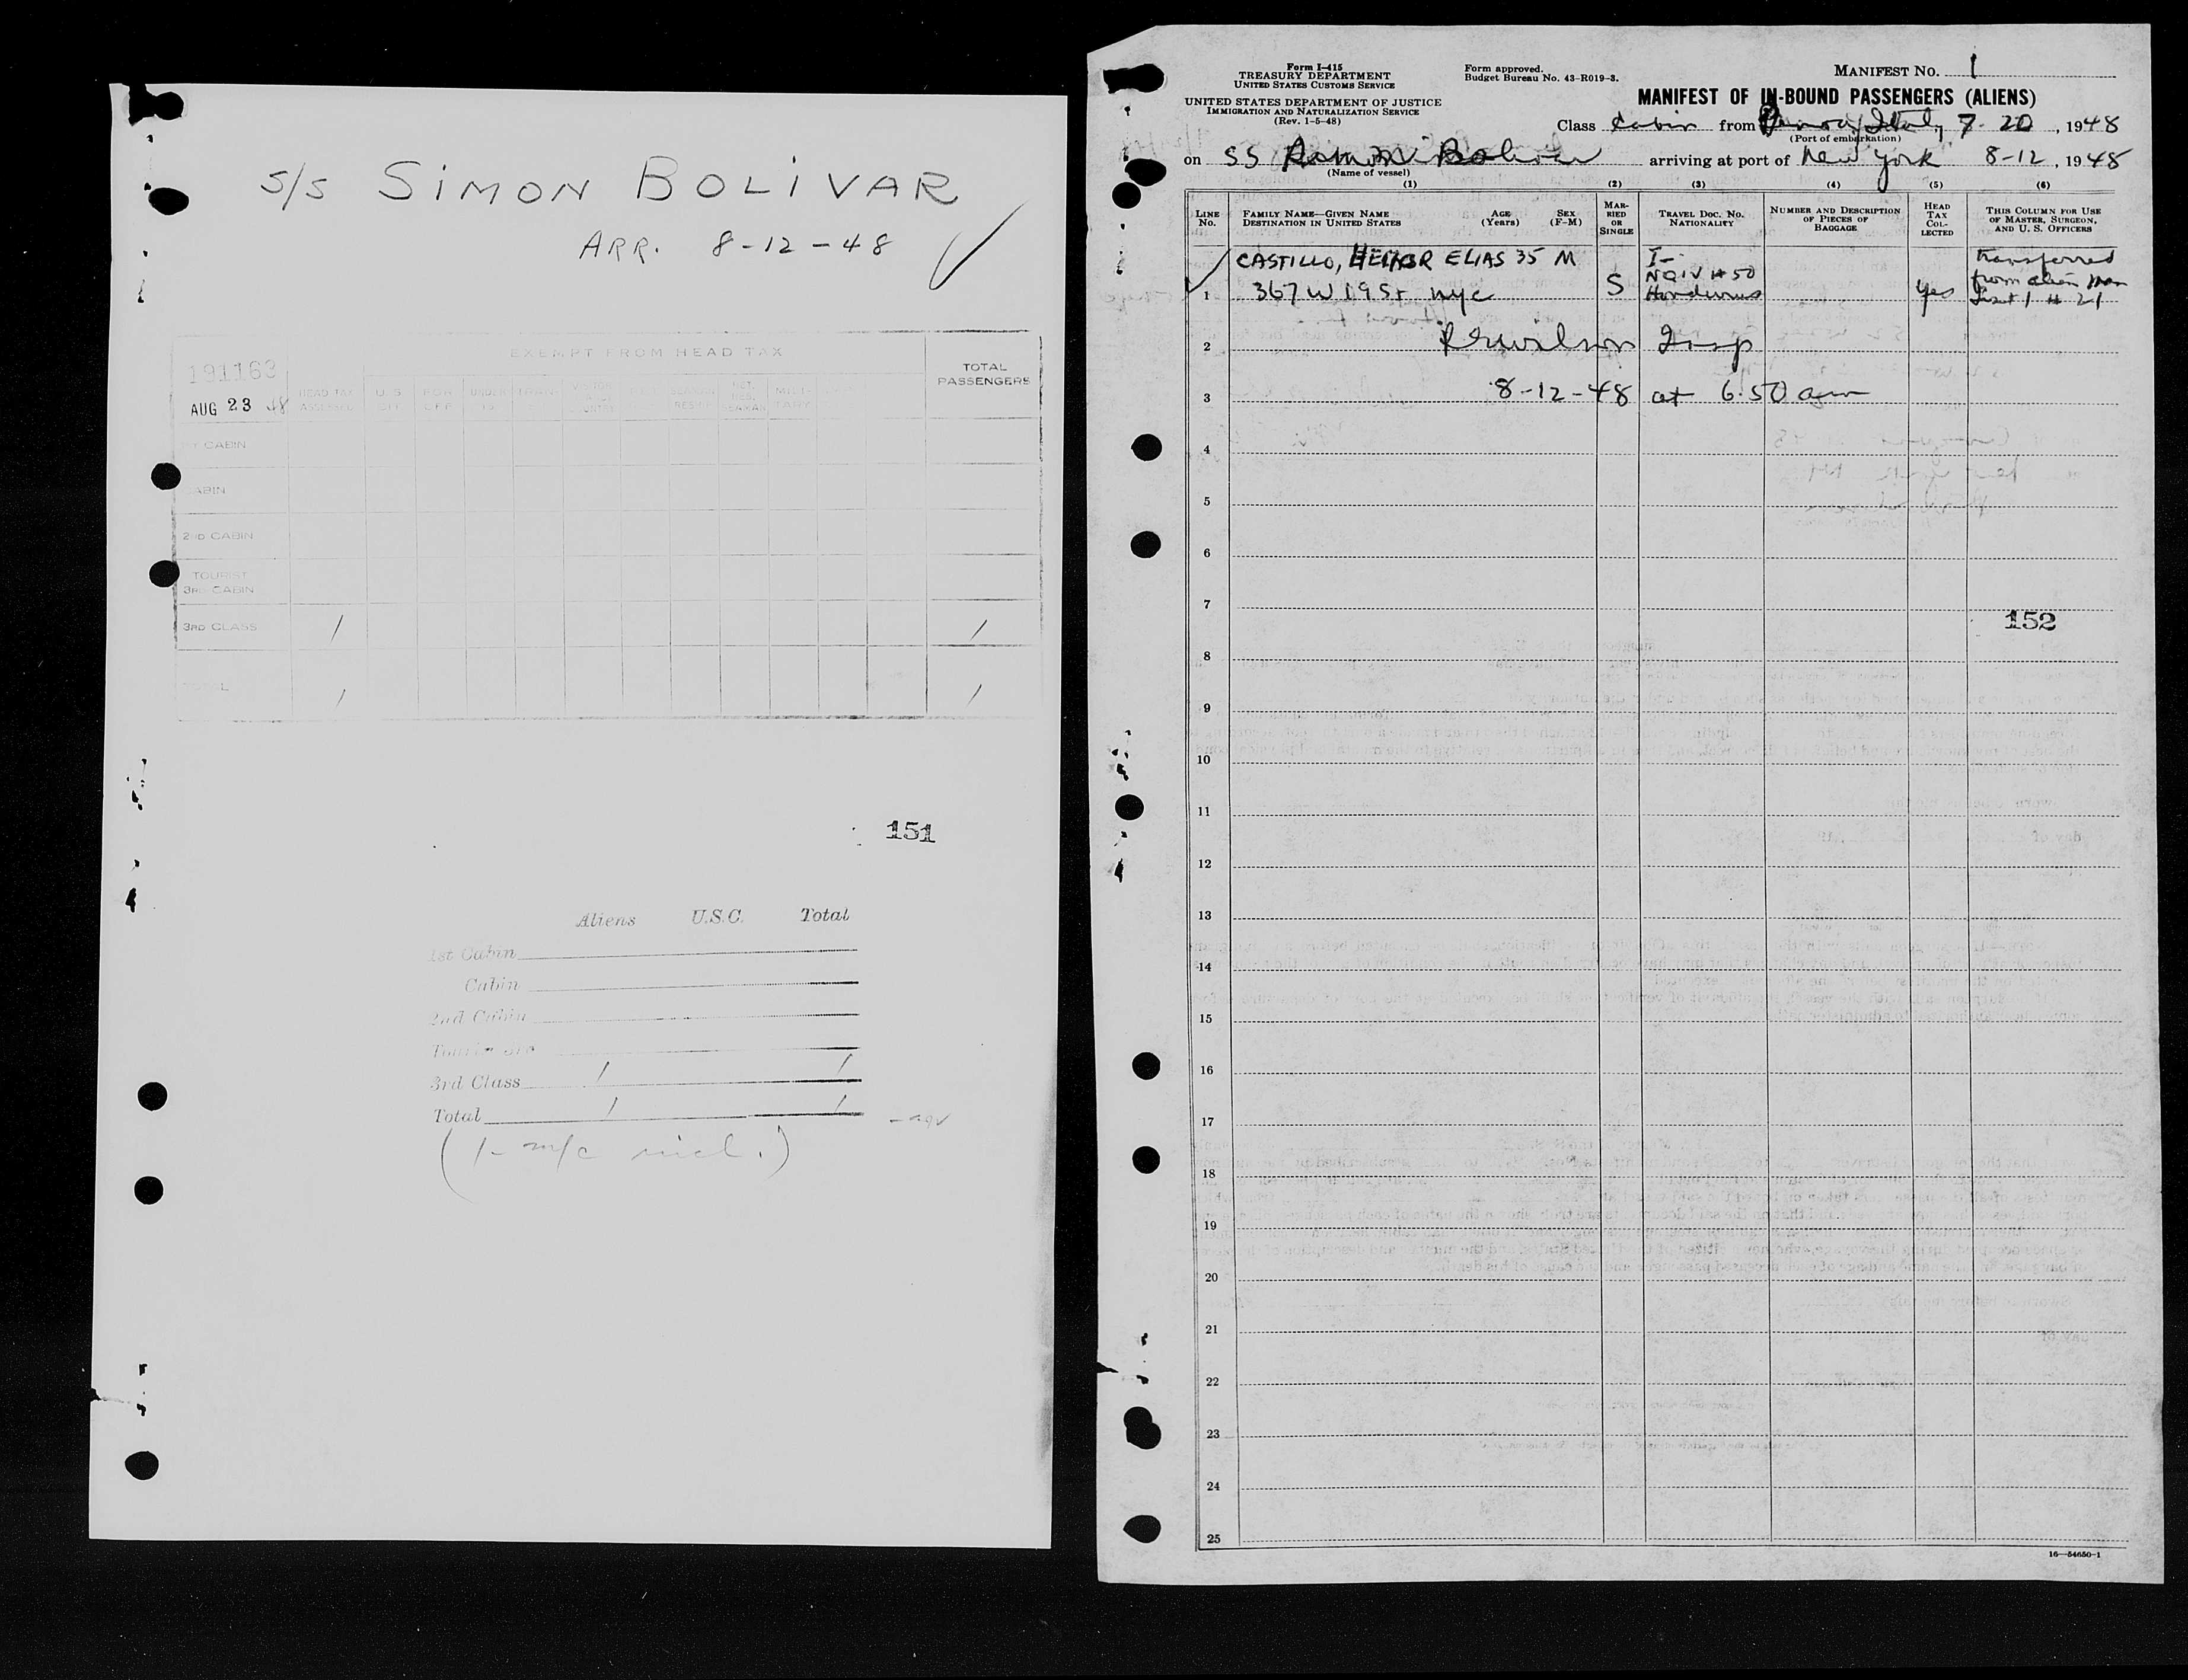 S/S SIMON BOLIVAR
ARR. 8-12-48
191163
AUG 23 48
EXEMPT FROM HEAD TAX
TOTAL PASSENGERS
HEAD TAX ASSESSED
U.S. CIT
UNDER
CABIN
CABIN
2ND CABIN
TOURIST
3RD CABIN
3RD CLASS / /
TOTAL / /
151
Aliens U.S.C. Total
1st Cabin
Cabin
2nd Cabin
3rd Class / /
Total / /
(1- m/c incl.)
Form I-415
TREASURY DEPARTMENT
UNITED STATES CUSTOMS SERVICE
UNITED STATES DEPARTMENT OF JUSTICE
IMMIGRATION AND NATURALIZATION SERVICE
(Rev. 1-5-48)
Form approved.
Budget Bureau No. 43-R019-3.
MANIFEST NO. 1
MANIFEST OF IN-BOUND PASSENGERS (ALIENS)
Class Cabin from Genoa, Italy 7 20, 1948
(Port of embarkation)
on SS Bolivar arriving at port of New York 8-12, 1948
(Name of vessel)
(1) (2) (3) (4) (5) (6)
LINE NO.
FAMILY NAME—GIVEN NAME
DESTINATION IN UNITED STATES
AGE (Years)
SEX (F-M)
MARRIED OR SINGLE
TRAVEL DOC. NO.
NATIONALITY
NUMBER AND DESCRIPTION OF PIECES OF BAGGAGE
HEAD TAX COLLECTED
THIS COLUMN FOR USE OF MASTER, SURGEON, AND U. S. OFFICERS
CASTILLO, ELIAS 35 M I- transferred
1 367 W 19 St nyc S NQIV # 50 Honduras yes from alien List 1 # 21
2 Insp
3 8-12-48 at 6.50 am
4
5
6
7
152
8
9
10
11
12
13
14
15
16
17
18
19
20
21
22
23
24
25
16—54650-1